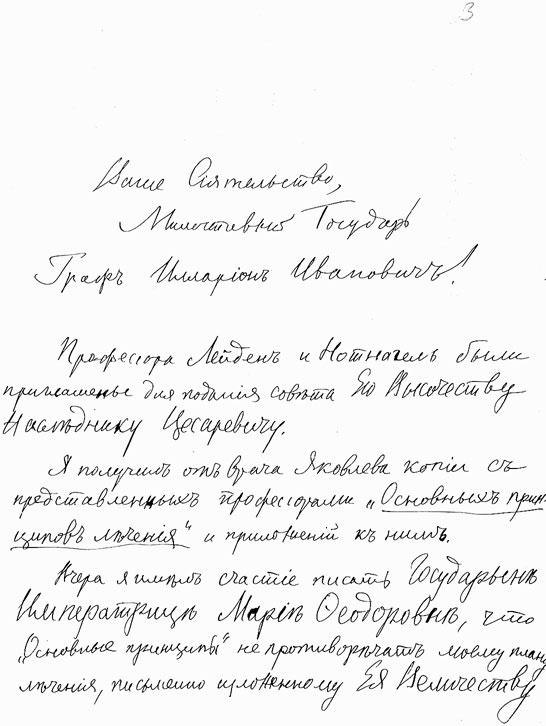 3
Ваше Сіятельство,
Милостивый Государь
Графъ Илларіонъ Ивановичъ!
Профессора Лейденъ и Нотнагель были
приглашены для поданія совѣта Его Высочеству
Наслѣднику Цесаревичу.
Я получилъ отъ врача Яковлева копіи съ
представленныхъ профессорами „Основныхъ прин-
циповъ лѣченія“ и приложеній къ нимъ.
Вчера я имѣлъ счастіе писать Государынѣ
Императрицѣ Маріи Ѳеодоровнѣ, что
„Основные принципы“ не противорѣчатъ моему плану
лѣченія, письменно изложенному Ея Величеству